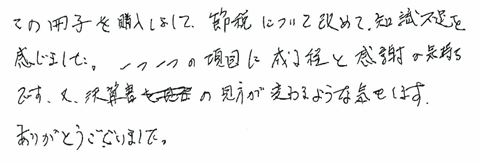 この冊子を購入しまして、節税について改めて、知識不足を
感じました。一つ一つの項目に成る程と感謝の気持ち
です、又、決算書の見方が変わるような気もします。
ありがとうございました。